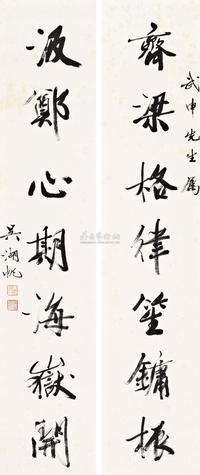 武申先生属
齊梁格律笙鏞振
汲鄭心期海嶽開
吳湖帆